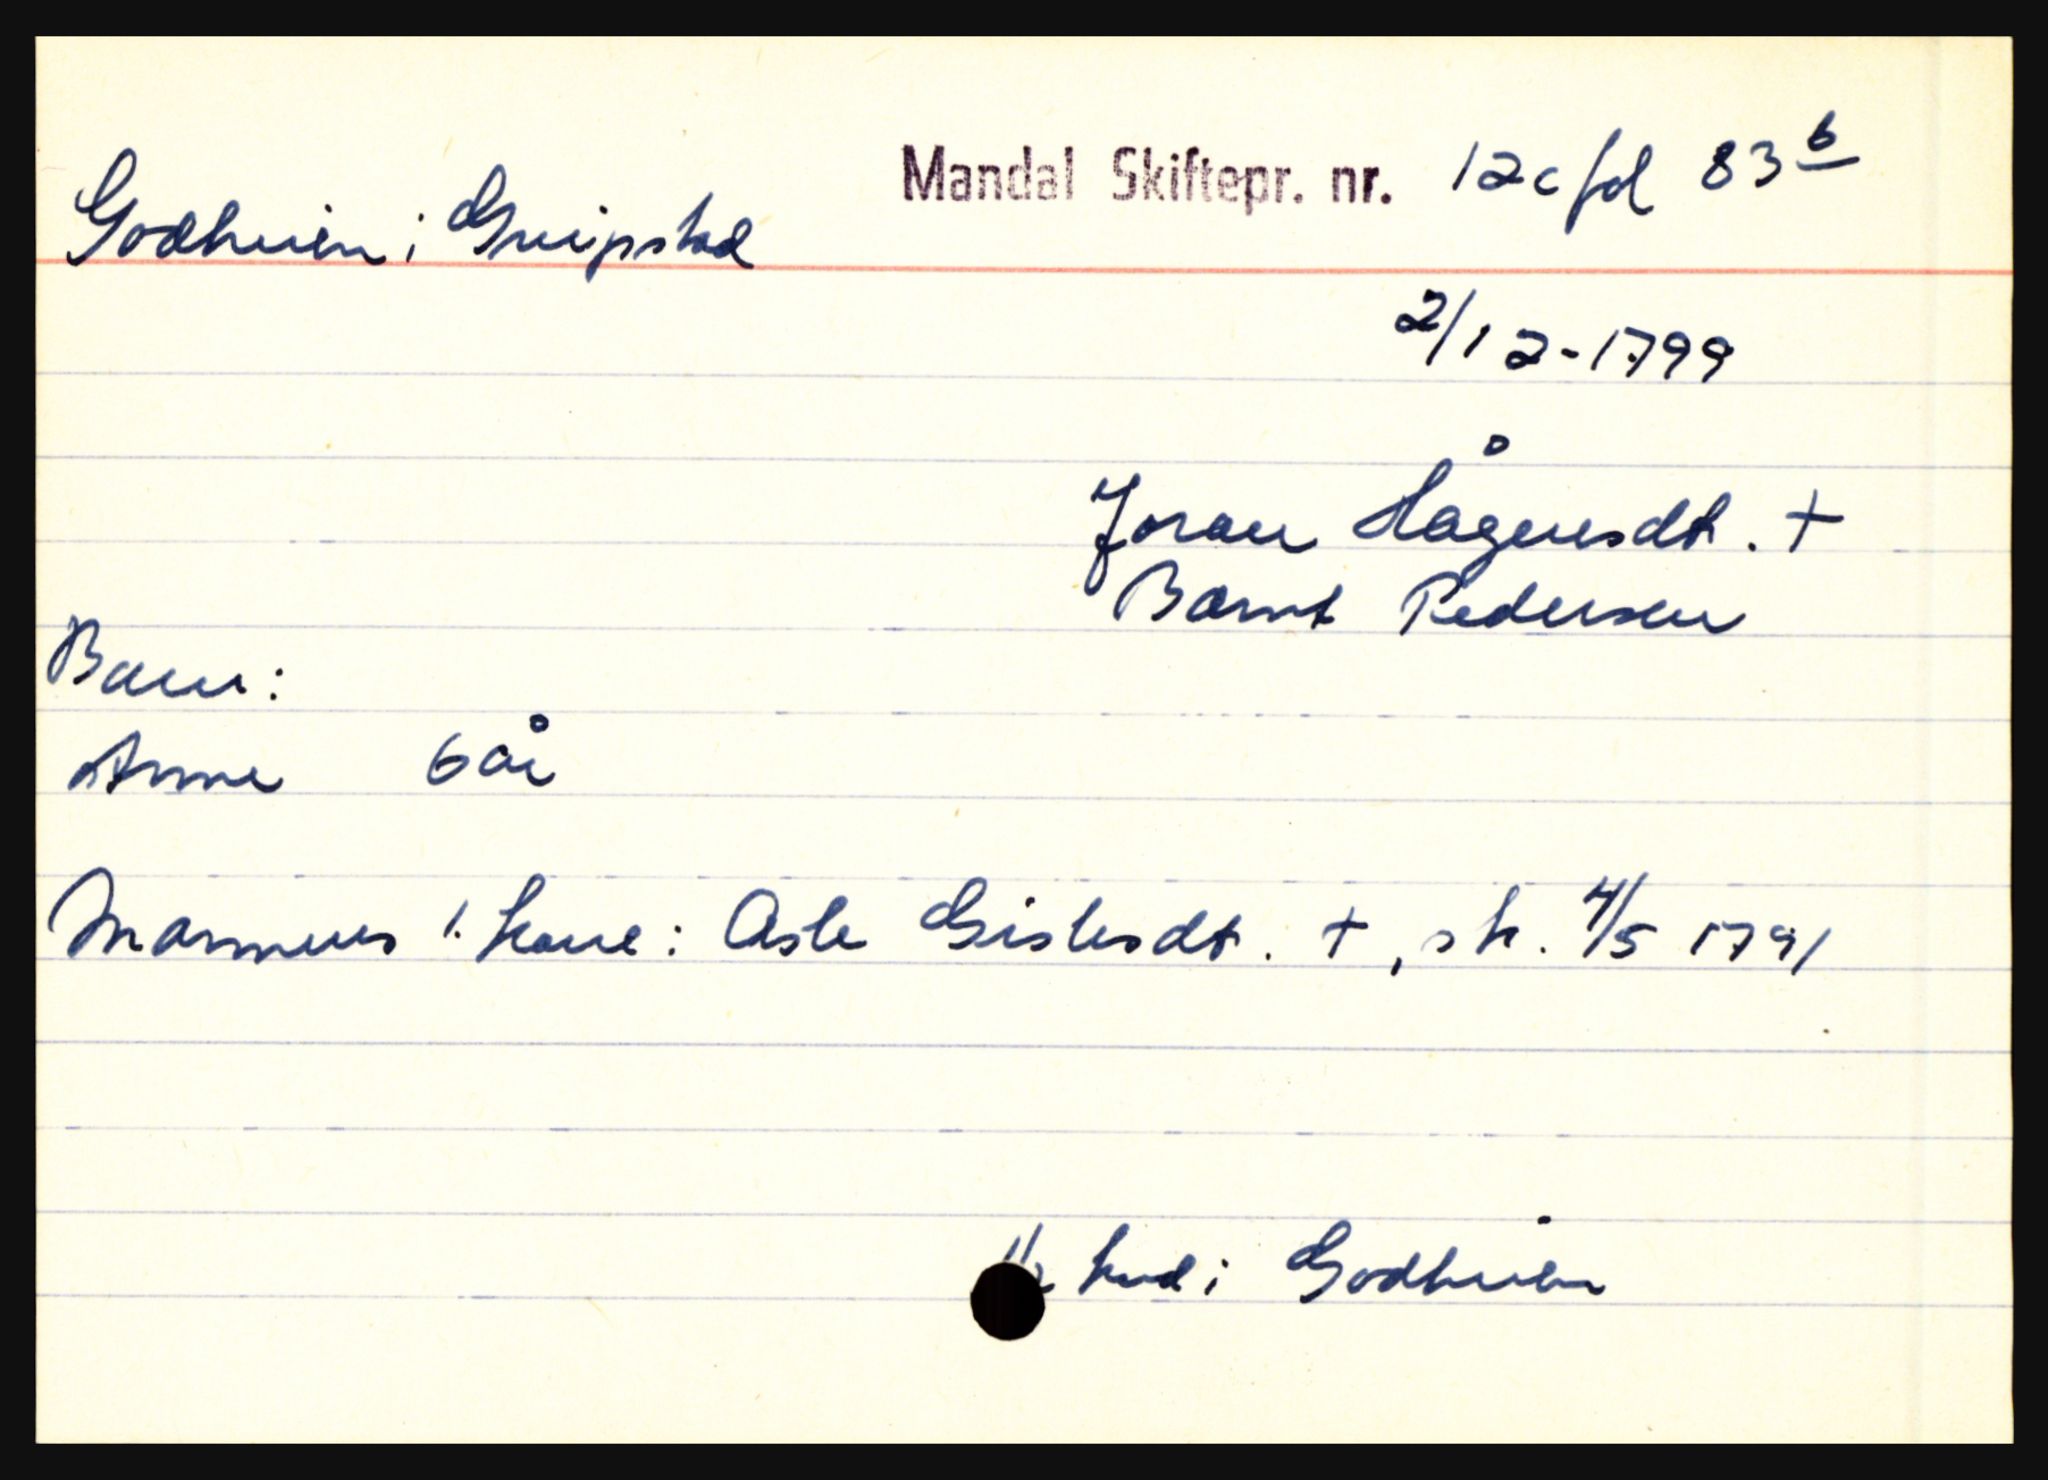 Mandal Skiftepr. nr. 12c fol 83 b
Godheien i Greipstad
2/12-1799
Joran Hågensdt. +
Bernt Pedersen
Barn:
Anne 6 år
Mannens 1. kone: Asle Gislesdt. +, sk. 4/5 1791
hud i Godheien